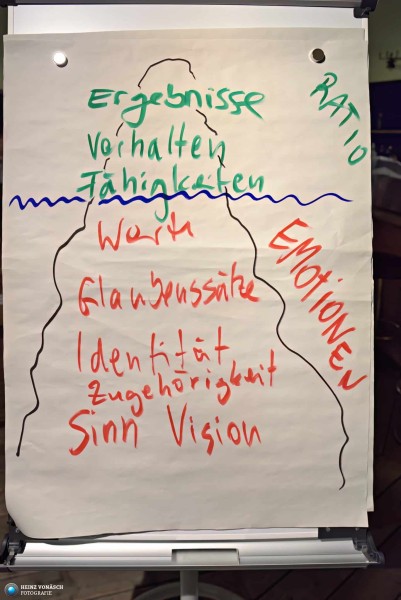 Ergebnisse
Verhalten
Fähigkeiten
RATIO
Werte
Glaubenssätze
Identität
Zugehörigkeit
Sinn Vision
EMOTIONEN
HEINZ VONÄSCH
FOTOGRAFIE